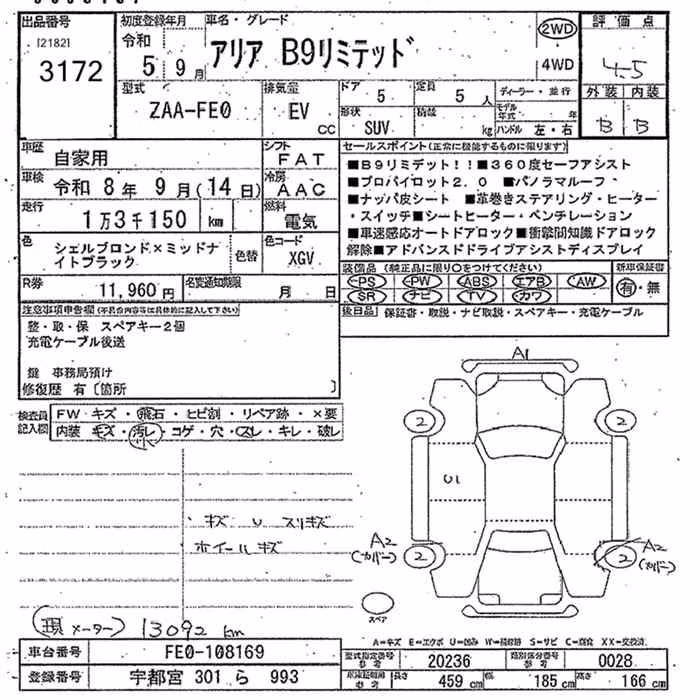 出品番号 初度登録年月 車名・グレード 評価点
[2182] 令和 アリア B9リミテッド 2WD 4.5
3172 5年 9月 4WD
型式 排気量 ドア 定員 ディーラー・並行 外装 内装
ZAA-FE0 EV 5 5人 モデル年式 年 B B
cc 形状 積載 ハンドル 左・右
SUV kg
車歴 自家用 シフト FAT セールスポイント(正常に機能するものに限ります)
車検 令和 8年 9月(14日) 冷房 AAC ■B9リミテッド!!■360度セーフアシスト
■プロパイロット2.0 ■パノラマルーフ
走行 1万3千150 km 燃料 電気 ■ナッパ皮シート ■革巻きステアリング・ヒーター
・スイッチ■シートヒーター・ベンチレーション
色 シェルブロンド×ミッドナ 色替 色コード ■車速感応オートドアロック■衝撃間知識ドアロック
イトブラック XGV 解除■アドバンスドドライブアシストディスプレイ
R券 11,960円 名変通知期限 月 日 装備品(純正品に限り○をつけてください) 新車保証書
PS PW ABS エアB AW 有・無
SR ナビ TV カワ
注意事項申告欄(不具合内容等は具体的に記入して下さい) 後日品 保証書・取説・ナビ取説・スペアキー・充電ケーブル
整・取・保 スペアキー2個
充電ケーブル後送
鍵 事務局預け
修復歴 有〔箇所 〕
検査員記入欄 FW キズ・飛石・ヒビ割・リペア跡・×要
内装 キズ・汚レ・コゲ・穴・スレ・キレ・破レ
A1
2 2
U1
キズ U スリキズ
ホイールキズ
A2 A2
(カバー) 2 2 (カバー)
スペア
現メーター) 13092 km
A=キズ E=エクボ U=凹み W=補修跡 S=サビ C=腐食 XX=交換済
車台番号 FE0-108169 型式指定番号 参考 20236 類別区分番号 参考 0028
登録番号 宇都宮 301 ら 993 参考 長さ 459 cm 幅 185 cm 高さ 166 cm